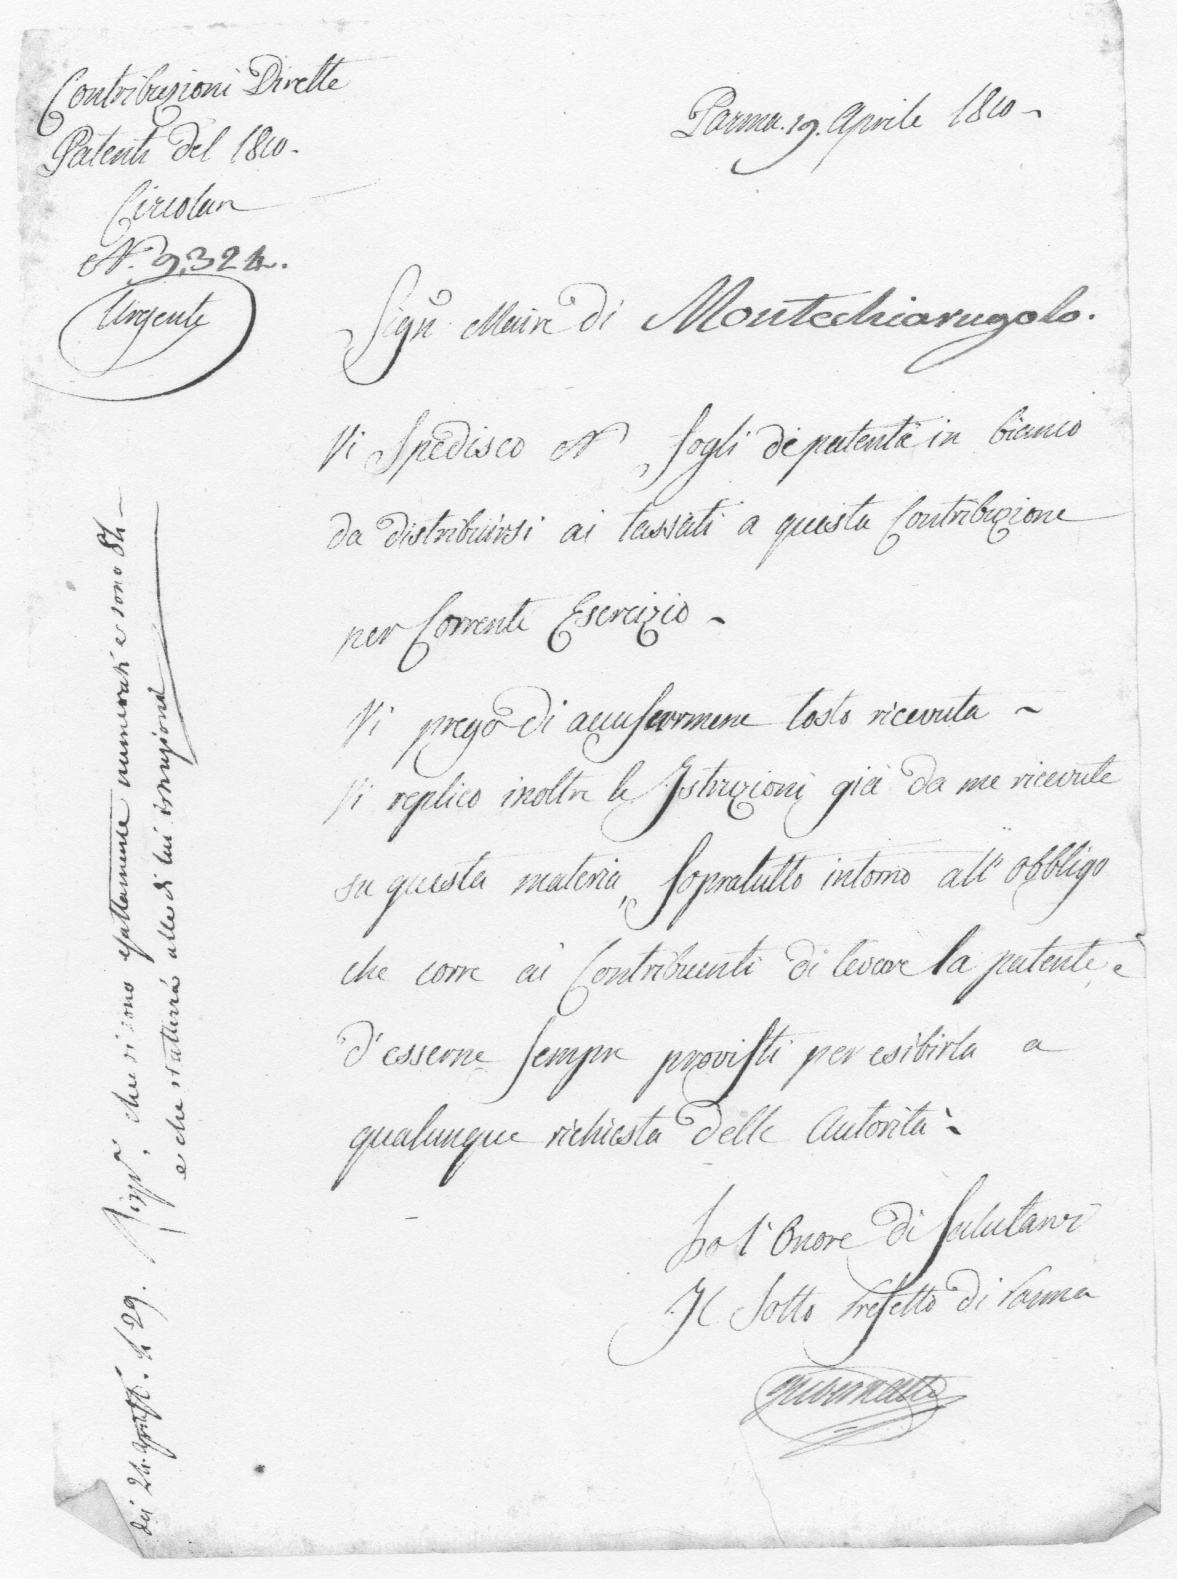 Contribuzioni Dirette
Patenti del 1810.
Circolare
N.° 9324.
Urgente
Parma. 19. Aprile 1810
Sigr Maire di Montechiarugolo.
Vi Spedisco N fogli di patenta in bianco
da distribuirsi ai tassati a questa Contribuzione
per Corrente Esercizio
Vi prego di accusarmene tosto ricevuta
Vi replico inoltre le Istruzioni già da me ricevute
su questa materia, sopratutto intorno all' obbligo
che corre ai Contribuenti di levare la patente, e
d'esserne sempre provisti per esibirla a
qualunque richiesta delle Autorità
Ho l'Onore di Salutarvi
Il Sotto Prefetto di Parma
dei 24. aprile. N 29. che si sono esattamente numerati e sono 84
e che starà alle di lui istruzioni